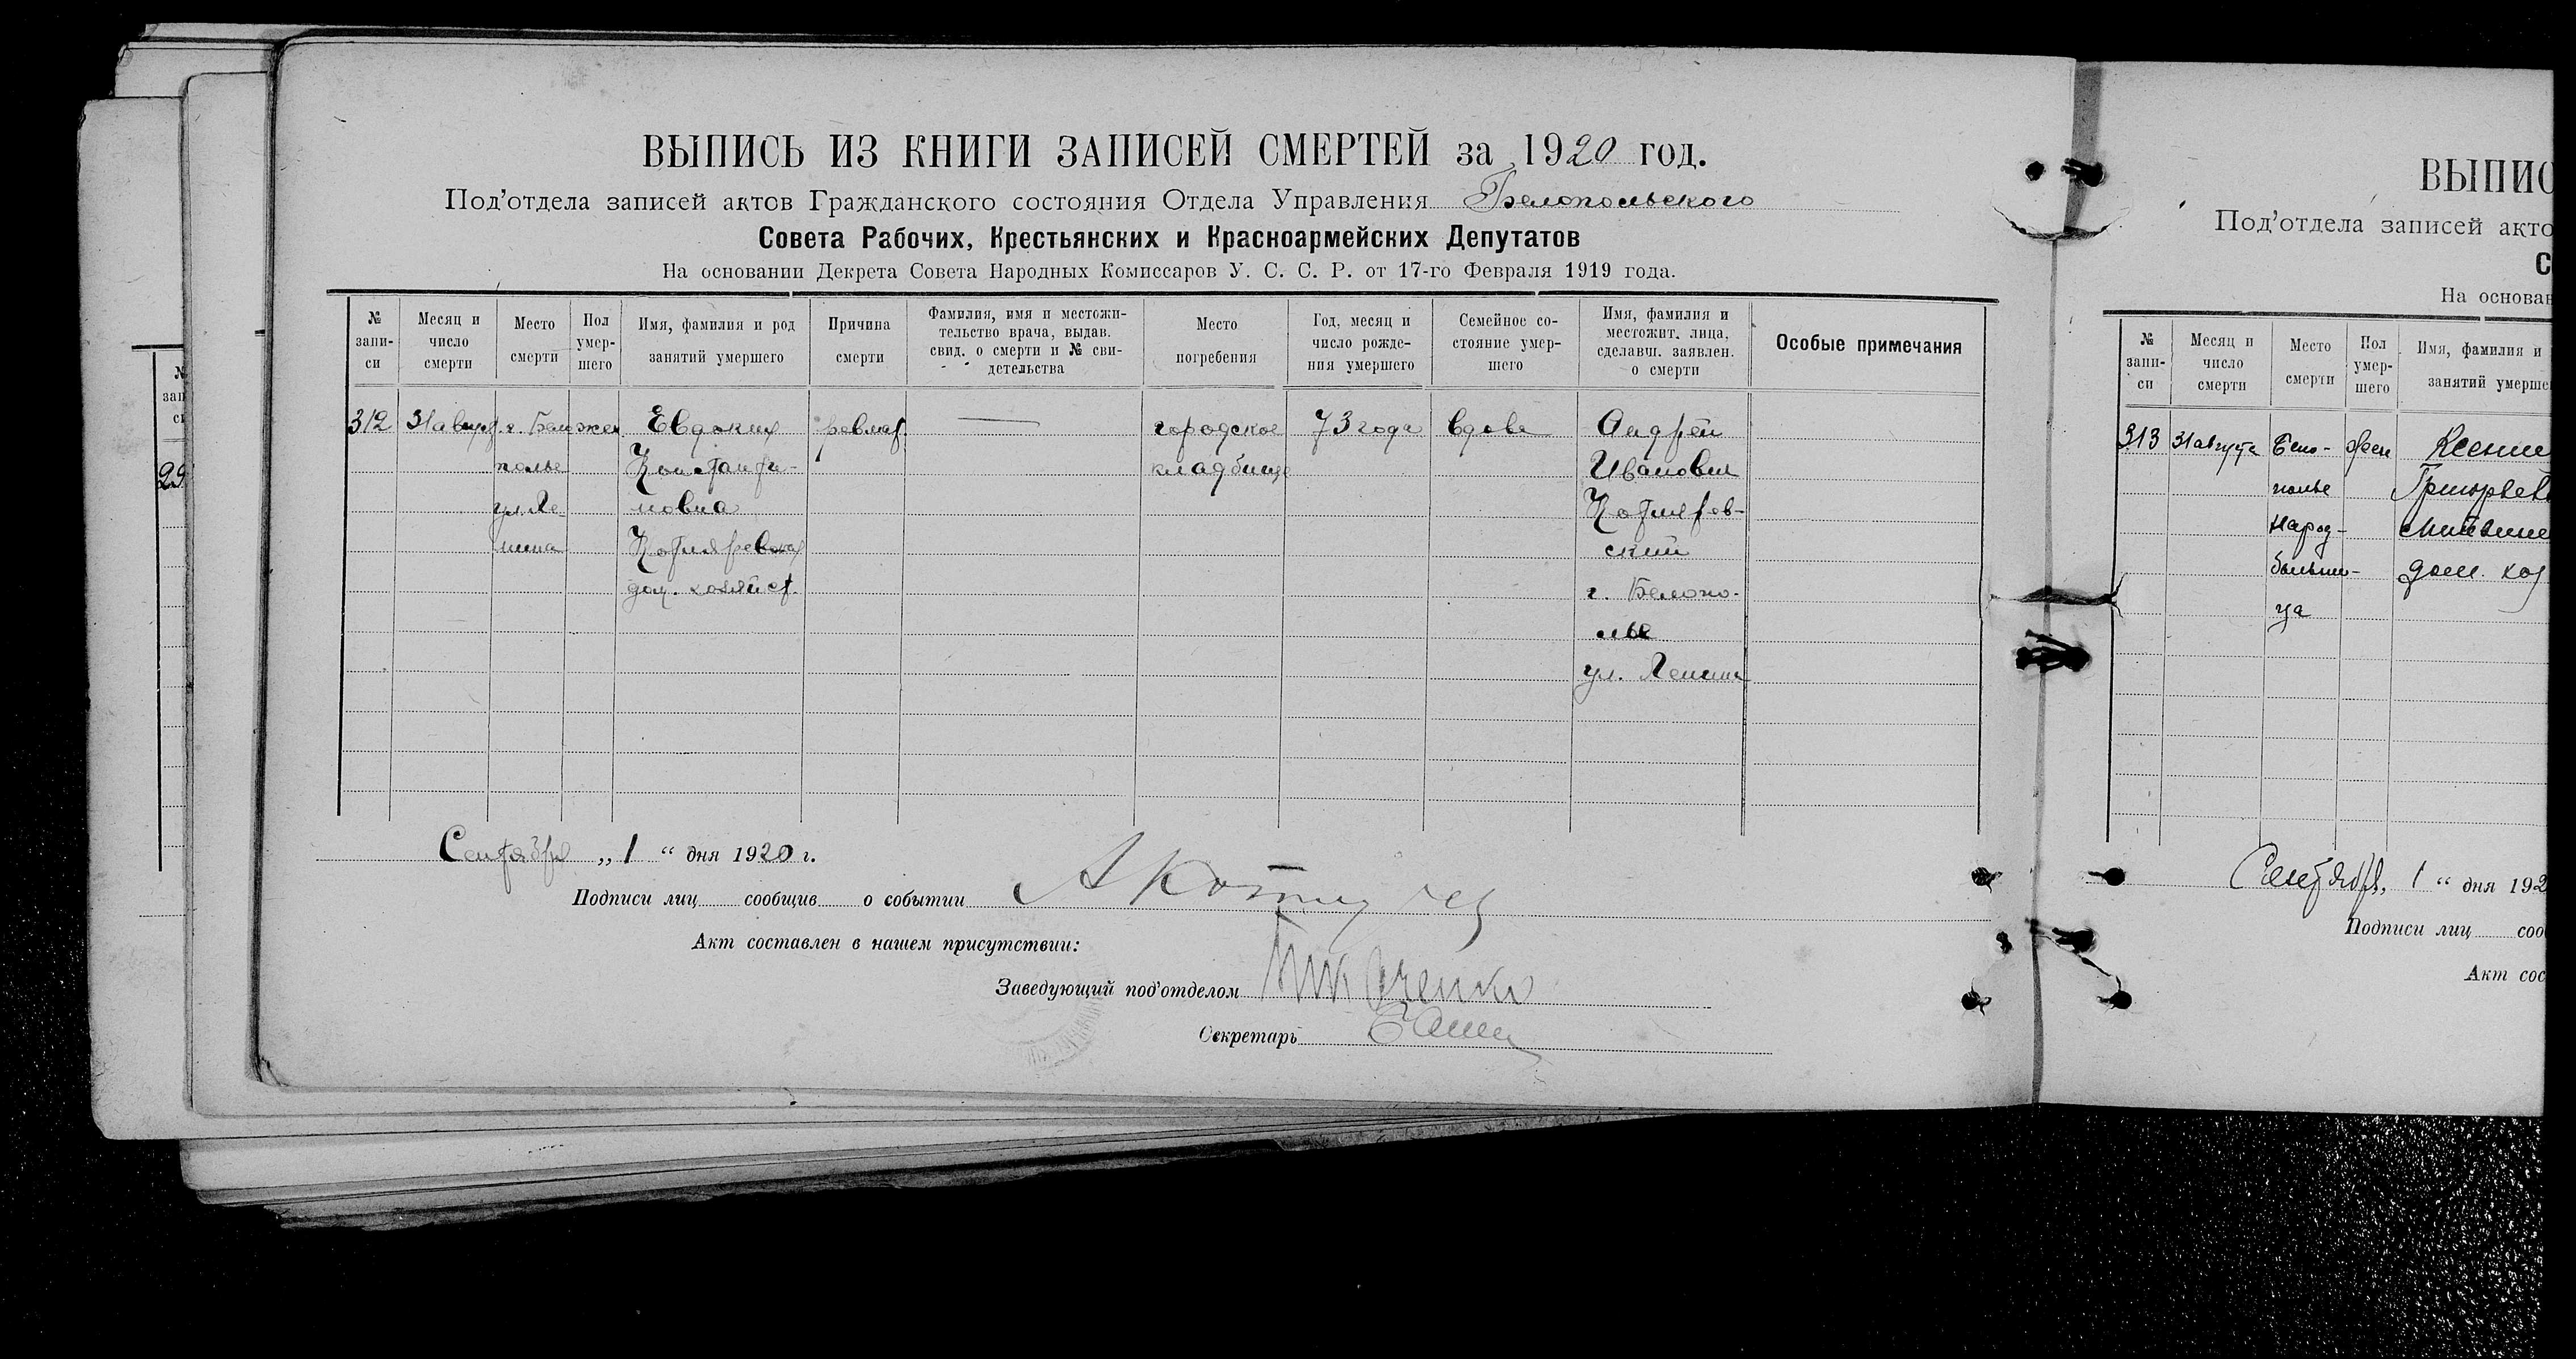 ВЫПИСЬ ИЗ КНИГИ ЗАПИСЕЙ СМЕРТЕЙ за 1920 год.
Под'отдела записей актов Гражданского состояния Отдела Управления Белопольского
Совета Рабочих, Крестьянских и Красноармейских Депутатов
На основании Декрета Совета Народных Комиссаров У. С. С. Р. от 17-го Февраля 1919 года.
№ запи-си
Месяц и число смерти
Место смерти
Пол умер-шего
Имя, фамилия и род занятий умершего
Причина смерти
Фамилия, имя и местожи-тельство врача, выдав. свид. о смерти и № сви-детельства
Место погребения
Год, месяц и число рожде-ния умершего
Семейное со-стояние умер-шего
Имя, фамилия и местожит. лица, сделавш. заявлен. о смерти
Особые примечания
312
31 август.
г. Бело
полье
ул. Ле-
нина
жен
Евдокия
Константи-
новна
Котляревская
дом. хозяйст.
ревмат.
—
городское
кладбище
73 года
вдова
Андрей
Иванович
Котлярев-
ский
г. Белопо-
лье
ул. Ленина
Сентября „ 1 “ дня 1920 г.
Подписи лиц сообщив о событии
Акт составлен в нашем присутствии:
Заведующий под'отделом
Секретарь
ВЫПИС
Под'отдела записей акто
С
На основан
№ запи-си
Месяц и число смерти
Место смерти
Пол умер-шего
Имя, фамилия и
занятий умерше
313
31 августа
Бело-
полье
Народ-
больни-
ца
жен
Ксения
Григорьев
дом. хоз
Сентября, 1 “ дня 192
Подписи лиц соо
Акт сос
№
зап
с
29